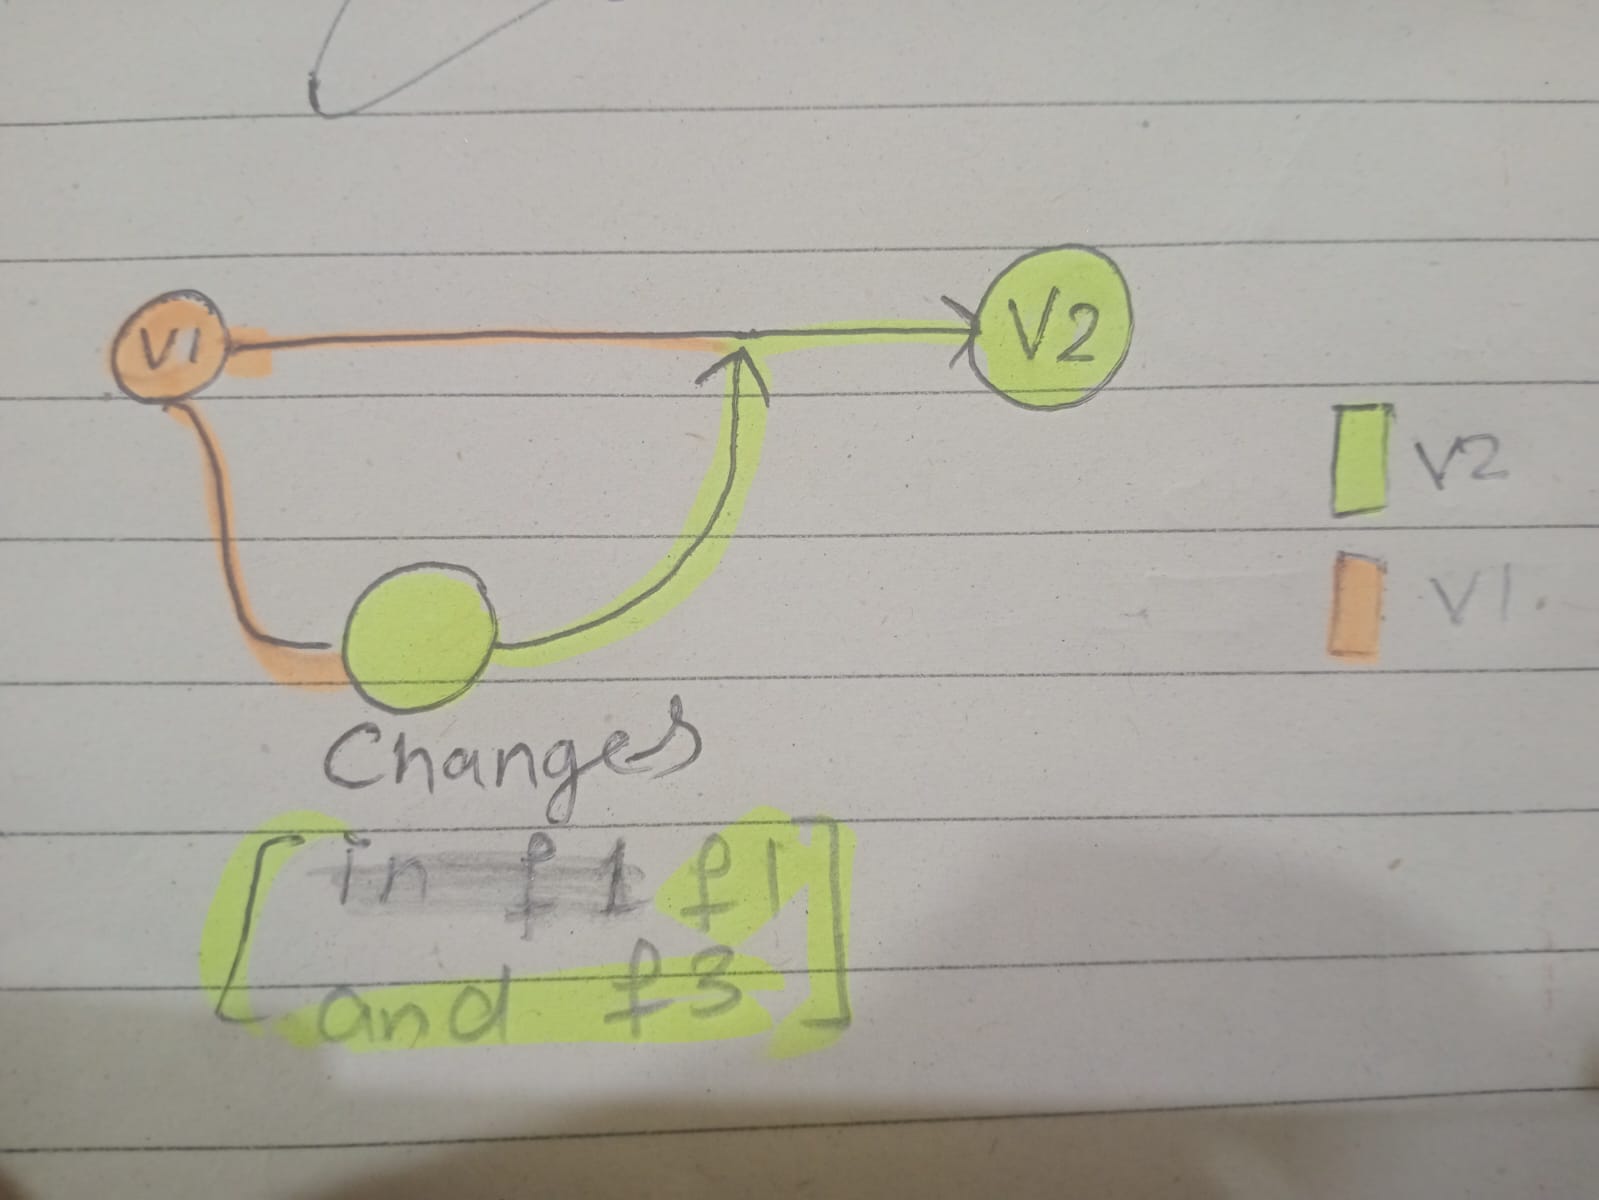 V1
V2
V2
V1.
Changes
in f1 f1
and f3